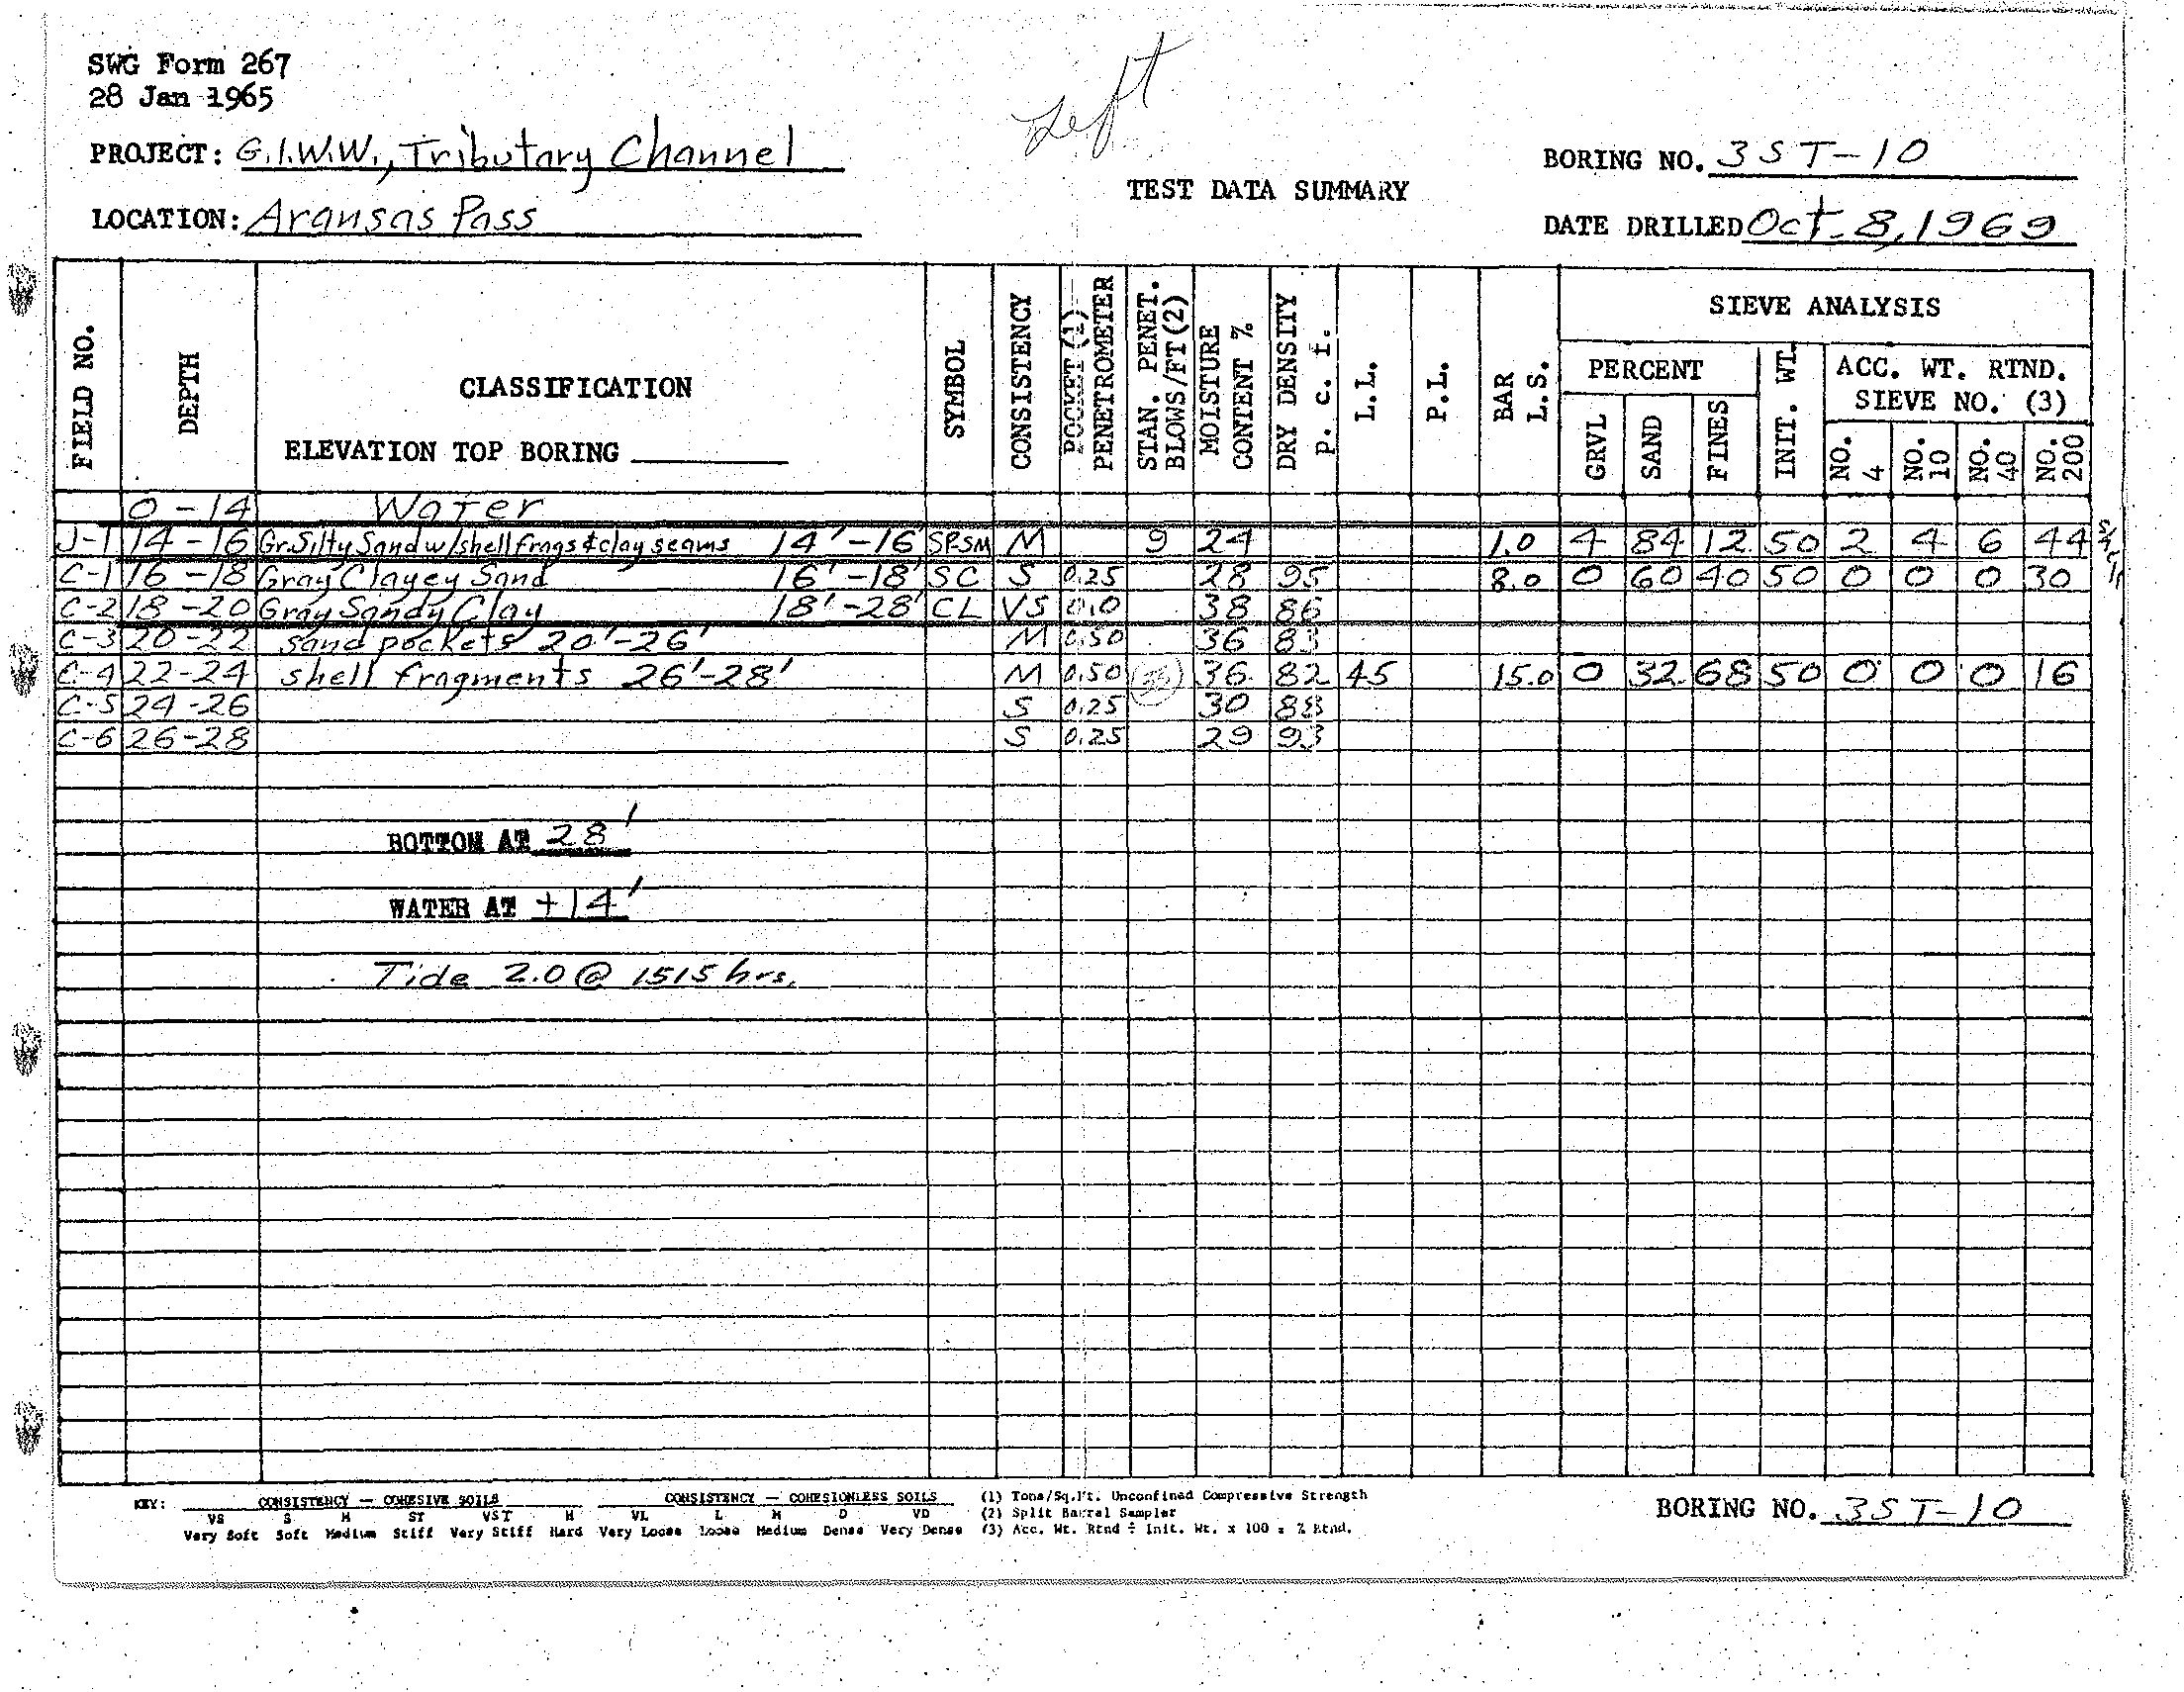 SWG Form 267
28 Jan 1965
Left
PROJECT: G.I.W.W., Tributary Channel
BORING NO. 3ST-10
TEST DATA SUMMARY
LOCATION: Aransas Pass
DATE DRILLED Oct. 8, 1969
FIELD NO. DEPTH CLASSIFICATION SYMBOL CONSISTENCY POCKET (1) PENETROMETER STAN. PENET. BLOWS/FT (2) MOISTURE CONTENT % DRY DENSITY p. c. f. L.L. P.L. BAR L.S. SIEVE ANALYSIS
PERCENT INIT. WT. ACC. WT. RTND. SIEVE NO. (3)
ELEVATION TOP BORING
GRVL SAND FINES NO. 4 NO. 10 NO. 40 NO. 200
0-14 Water
J-1 14-16 Gr. Silty Sand w/shell frags & clay seams 14'-16' SP-SM M 9 24 1.0 4 84 12 50 2 4 6 44
C-1 16-18 Gray Clayey Sand 16'-18' SC S 0.25 28 95 8.0 0 60 40 50 0 0 0 30
C-2 18-20 Gray Sandy Clay 18'-28' CL VS 0.0 38 86
C-3 20-22 sand pockets 20'-26' M 0.50 36 83
C-4 22-24 shell fragments 26'-28' M 0.50 36 82 45 15.0 0 32 68 50 0 0 0 16
C-5 24-26 S 0.25 30 88
C-6 26-28 S 0.25 29 93
BOTTOM AT 28'
WATER AT +14'
Tide 2.0 @ 1515 hrs.
KEY: CONSISTENCY — COHESIVE SOILS CONSISTENCY — COHESIONLESS SOILS (1) Tons/Sq.Ft. Unconfined Compressive Strength
VS S M ST VST H VL L M D VD (2) Split Barrel Sampler
Very Soft Soft Medium Stiff Very Stiff Hard Very Loose Loose Medium Dense Very Dense (3) Acc. Wt. Rtnd ÷ Init. Wt. x 100 = % Rtnd.
BORING NO. 3ST-10